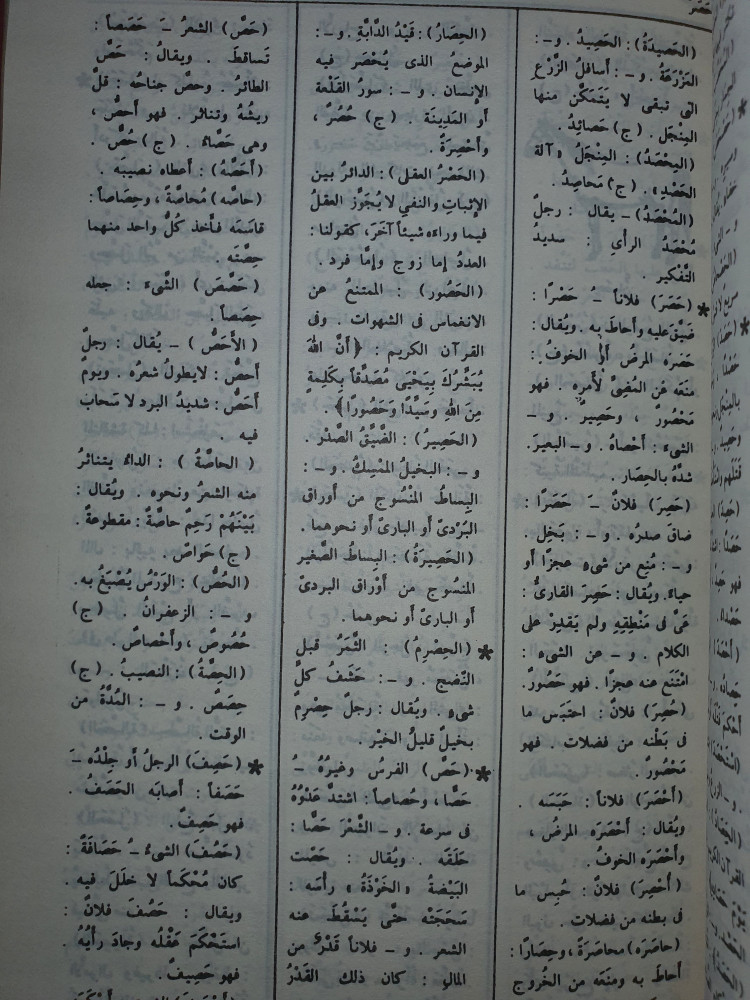 حَصَرَ
(الحَصِيدَةُ): الحَصِيدُ . و –:
المَزْرَعَةُ . و – : أَسافلُ الزَّرْعِ
التى تبقى لا يَتَمَكَّنُ منها
المِنْجَل . (ج) حَصائِدُ .
(المِحْصَدُ): المِنْجَلُ «آلة
الحَصْدِ» . (ج) مَحاصِدُ .
(المُحْصَدُ) – يقال : رجلٌ
مُحْصَدُ الرأْىِ : سديدُ
التَّفكير .
* (حَصَرَ) فلاناً ـُ حَصْرًا :
ضَيَّقَ عليه وأَحاطَ به . ويُقال :
حَصَرَه المرضُ أَو الخوفُ :
منَعَه عَن المُضِىِّ لأَمرِه . فهو
مَحْصُورٌ ، وحَصِيرٌ . و –
الشىءَ : أَحْصاهُ . و – البعيرَ :
شدَّهُ بالحِصَار .
(حَصِرَ) فلانٌ ـَ حَصَرًا :
ضاقَ صدرُه . و – : بَخِل .
و – : مُنِع من شىءٍ عجزًا أَو
حياءً . ويُقال : حَصِرَ القارئُ :
عَىَّ فى مَنْطِقِهِ ولم يَقدِرْ على
الكلام . و – عن الشىء :
امْتَنَع عنه عجزًا . فهو حَصُورٌ .
(حُصِرَ) فلانٌ : احتَبَس ما
فى بَطْنه من فضلات . فهو
مَحْصُورٌ .
(أَحْصَرَ) فلاناً : حَبَسَه .
ويُقال : أَحْصَرَه المرضُ ،
وأَحْصَرَه الخوفُ .
(أُحْصِرَ) فلانٌ : حُبِس ما
فى بطنه من فضلات .
(حاصَرَه) محاصَرَةً ، وحِصَارًا :
أَحاطَ به ومنَعَه من الخُروج
(الحِصَارُ) : قَيْدُ الدَّابَّةِ . و – :
الموضعُ الذى يُحْصَر فيه
الإِنسان . و – : سورُ القَلْعة
أَو المَدِينَة . (ج) حُصُرٌ ،
وأَحْصِرَةٌ .
(الحَصْرُ العقلىّ) : الدائرُ بين
الإِثباتِ والنفىِ لا يُجَوِّز العقلُ
فيما وراءَه شيئاً آخَرَ ، كقولنا :
العددُ إِما زوج وإِمَّا فرد .
(الحَصُور) : الممتنعُ عن
الانغماس فى الشهوات . وفى
القرآن الكريم : ﴿أَنَّ اللهَ
يُبَشِّرُكَ بِيَحْيَى مُصَدِّقاً بِكَلِمَةٍ
مِنَ اللهِ وَسَيِّدًا وَحَصُورًا﴾ .
(الحَصِيرُ) : الضَّيِّقُ الصَّدْر .
و – : البخيلُ المُمْسِكُ . و – :
البِساطُ المنْسُوج من أَوراق
البَرْدىّ أَو البارىّ أَو نحوهما .
(الحَصِيرَةُ) : البِساطُ الصَّغير
المنسُوج من أَوْراق البردىّ
أَو البارىّ أَو نحوهما .
* (الحِصْرِمُ) : الثَّمَرُ قبل
النَّضج . و – : حَشَفُ كلِّ
شىءٍ . ويُقال : رجلٌ حِصْرِمٌ
بخيلٌ قليلُ الخيْر .
* (حَصَّ) الفرسُ وغيرُهُ ـُ
حَصًّا ، وحُصاصاً : اشتدَّ عَدْوُهُ
فى سرعة . و – الشَّعْرَ حَصًّا :
حَلَقَه . ويُقال : حَصَّت
البَيْضةُ «الخَوْذَةُ» رأْسَه :
سَحَجَتْه حتَّى يَسْقُطَ عنه
الشعر . و – فلاناً قَدْرٌ من
المال : كان ذلك القَدْرُ
(حَصَّ) الشعرُ ـَ حَصَصاً :
تَساقطَ . ويقالُ : حَصَّ
الطائرُ . وحصَّ جناحُه : قلَّ
ريشُهُ وتناثر . فهو أَحصُّ ،
وهى حَصَّاءُ . (ج) حُصٌّ .
(أَحَصَّهُ) : أَعطاه نصيبَه .
(حاصَّه) مُحاصَّةً ، وحِصَاصاً :
قاسَمَه فأَخذ كُلُّ واحد منهما
حِصَّتَه .
(حَصَّصَ) الشَّىءَ : جعله
حِصَصاً .
(الأَحَصُّ) – يُقال : رجلٌ
أَحصُّ : لا يطولُ شعرُه . ويومٌ
أَحَصُّ : شديدُ البردِ لا سَحابَ
فيه .
(الحاصَّةُ) : الداءُ يتناثرُ
منه الشعرُ ونحوه . ويُقال :
بَيْنَهُمْ رَحِمٌ حاصَّةٌ : مقطوعةٌ .
(ج) حَواصّ .
(الحُصُّ) : الوَرْسُ يُصْبَغُ به .
و – : الزعفرانُ . (ج)
حُصُوصٌ ، وأَحْصاصٌ .
(الحِصَّةُ) : النصيبُ . (ج)
حِصَصٌ . و – : المُدَّةُ من
الوقت .
* (حَصِفَ) الرجلُ أَو جِلْدُه ـَ
حَصَفاً : أَصابَه الحَصَفُ .
فهو حَصِفٌ .
(حَصُفَ) الشىءُ ـُ حَصَافَةً :
كان مُحْكَماً لا خَلَلَ فيه .
ويقال : حَصُفَ فلانٌ :
استَحْكَمَ عَقْلُه وجادَ رأْيُهُ .
فهو حَصِيفٌ .